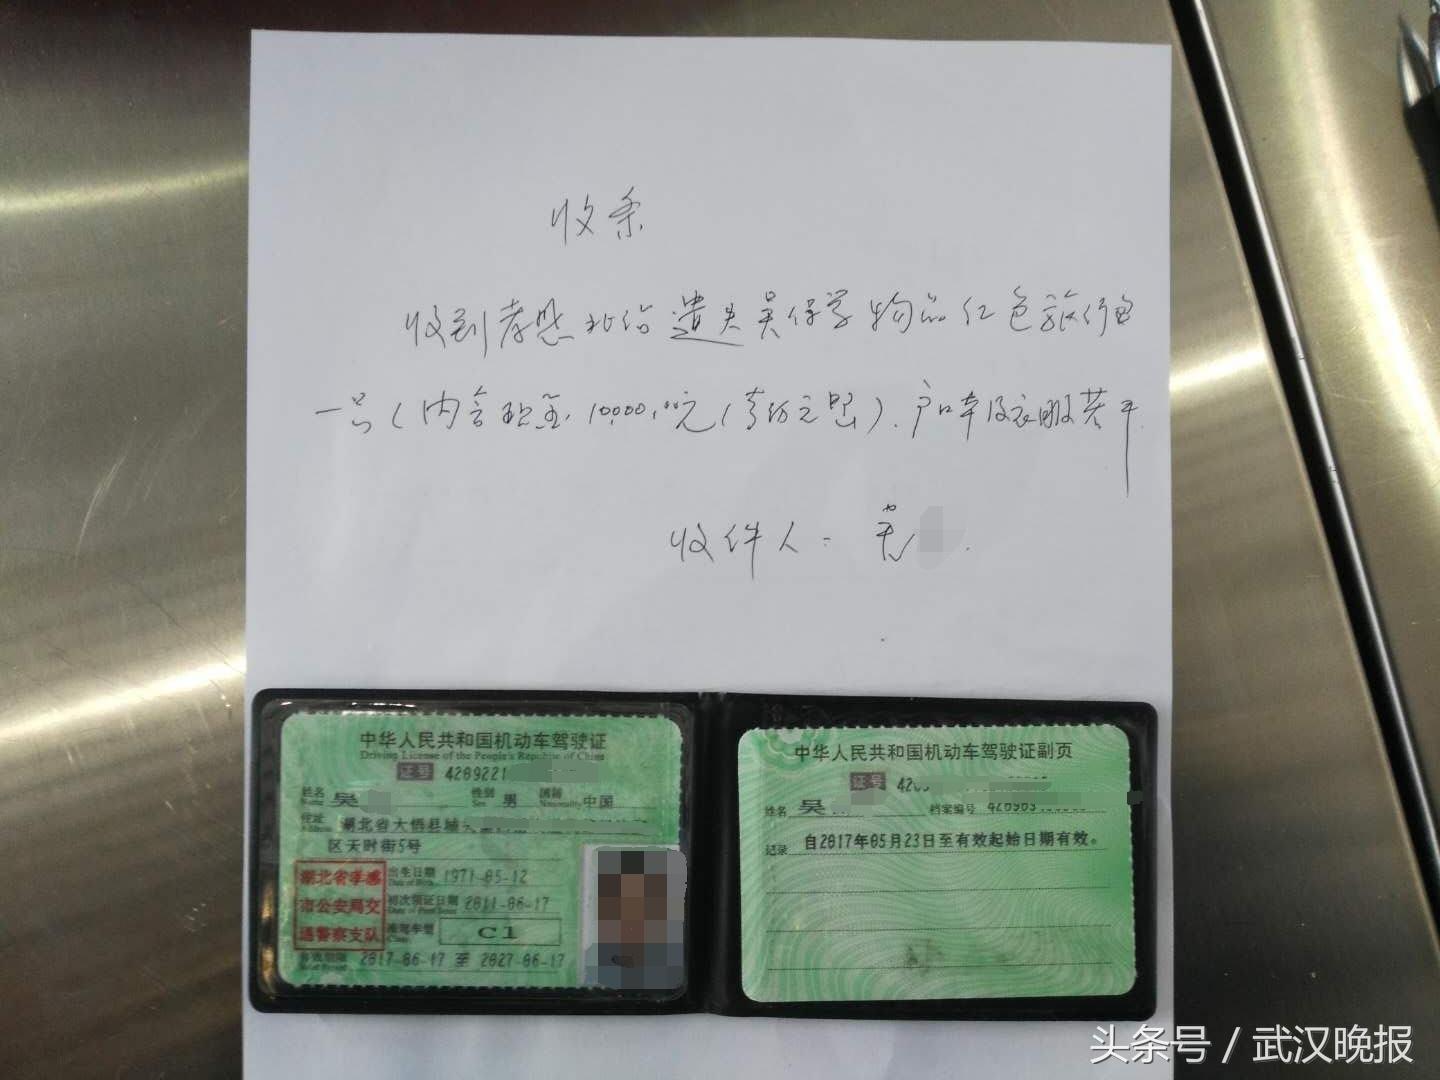 收条
收到孝感北站遗失吴保学物品红色旅行包
一只(内含现金10000.00元(壹万元整).户口本及衣服若干.
收件人: 吴
中华人民共和国机动车驾驶证
Driving License of the People's Republic of China
证号 4209221
姓名 吴 性别 男 国籍 中国
Name Sex Nationality
住址 湖北省大悟县城
Address
区天时街5号
湖北省孝感
市公安局交
通警察支队
出生日期 1971-05-12
Date of Birth
初次领证日期 2011-06-17
Date of First Issue
准驾车型 C1
Class
有效期限 2017-06-17 至 2027-06-17
Valid Period
中华人民共和国机动车驾驶证副页
证号 420
姓名 吴 档案编号 420903
记录 自2017年05月23日至有效起始日期有效。
头条号 / 武汉晚报